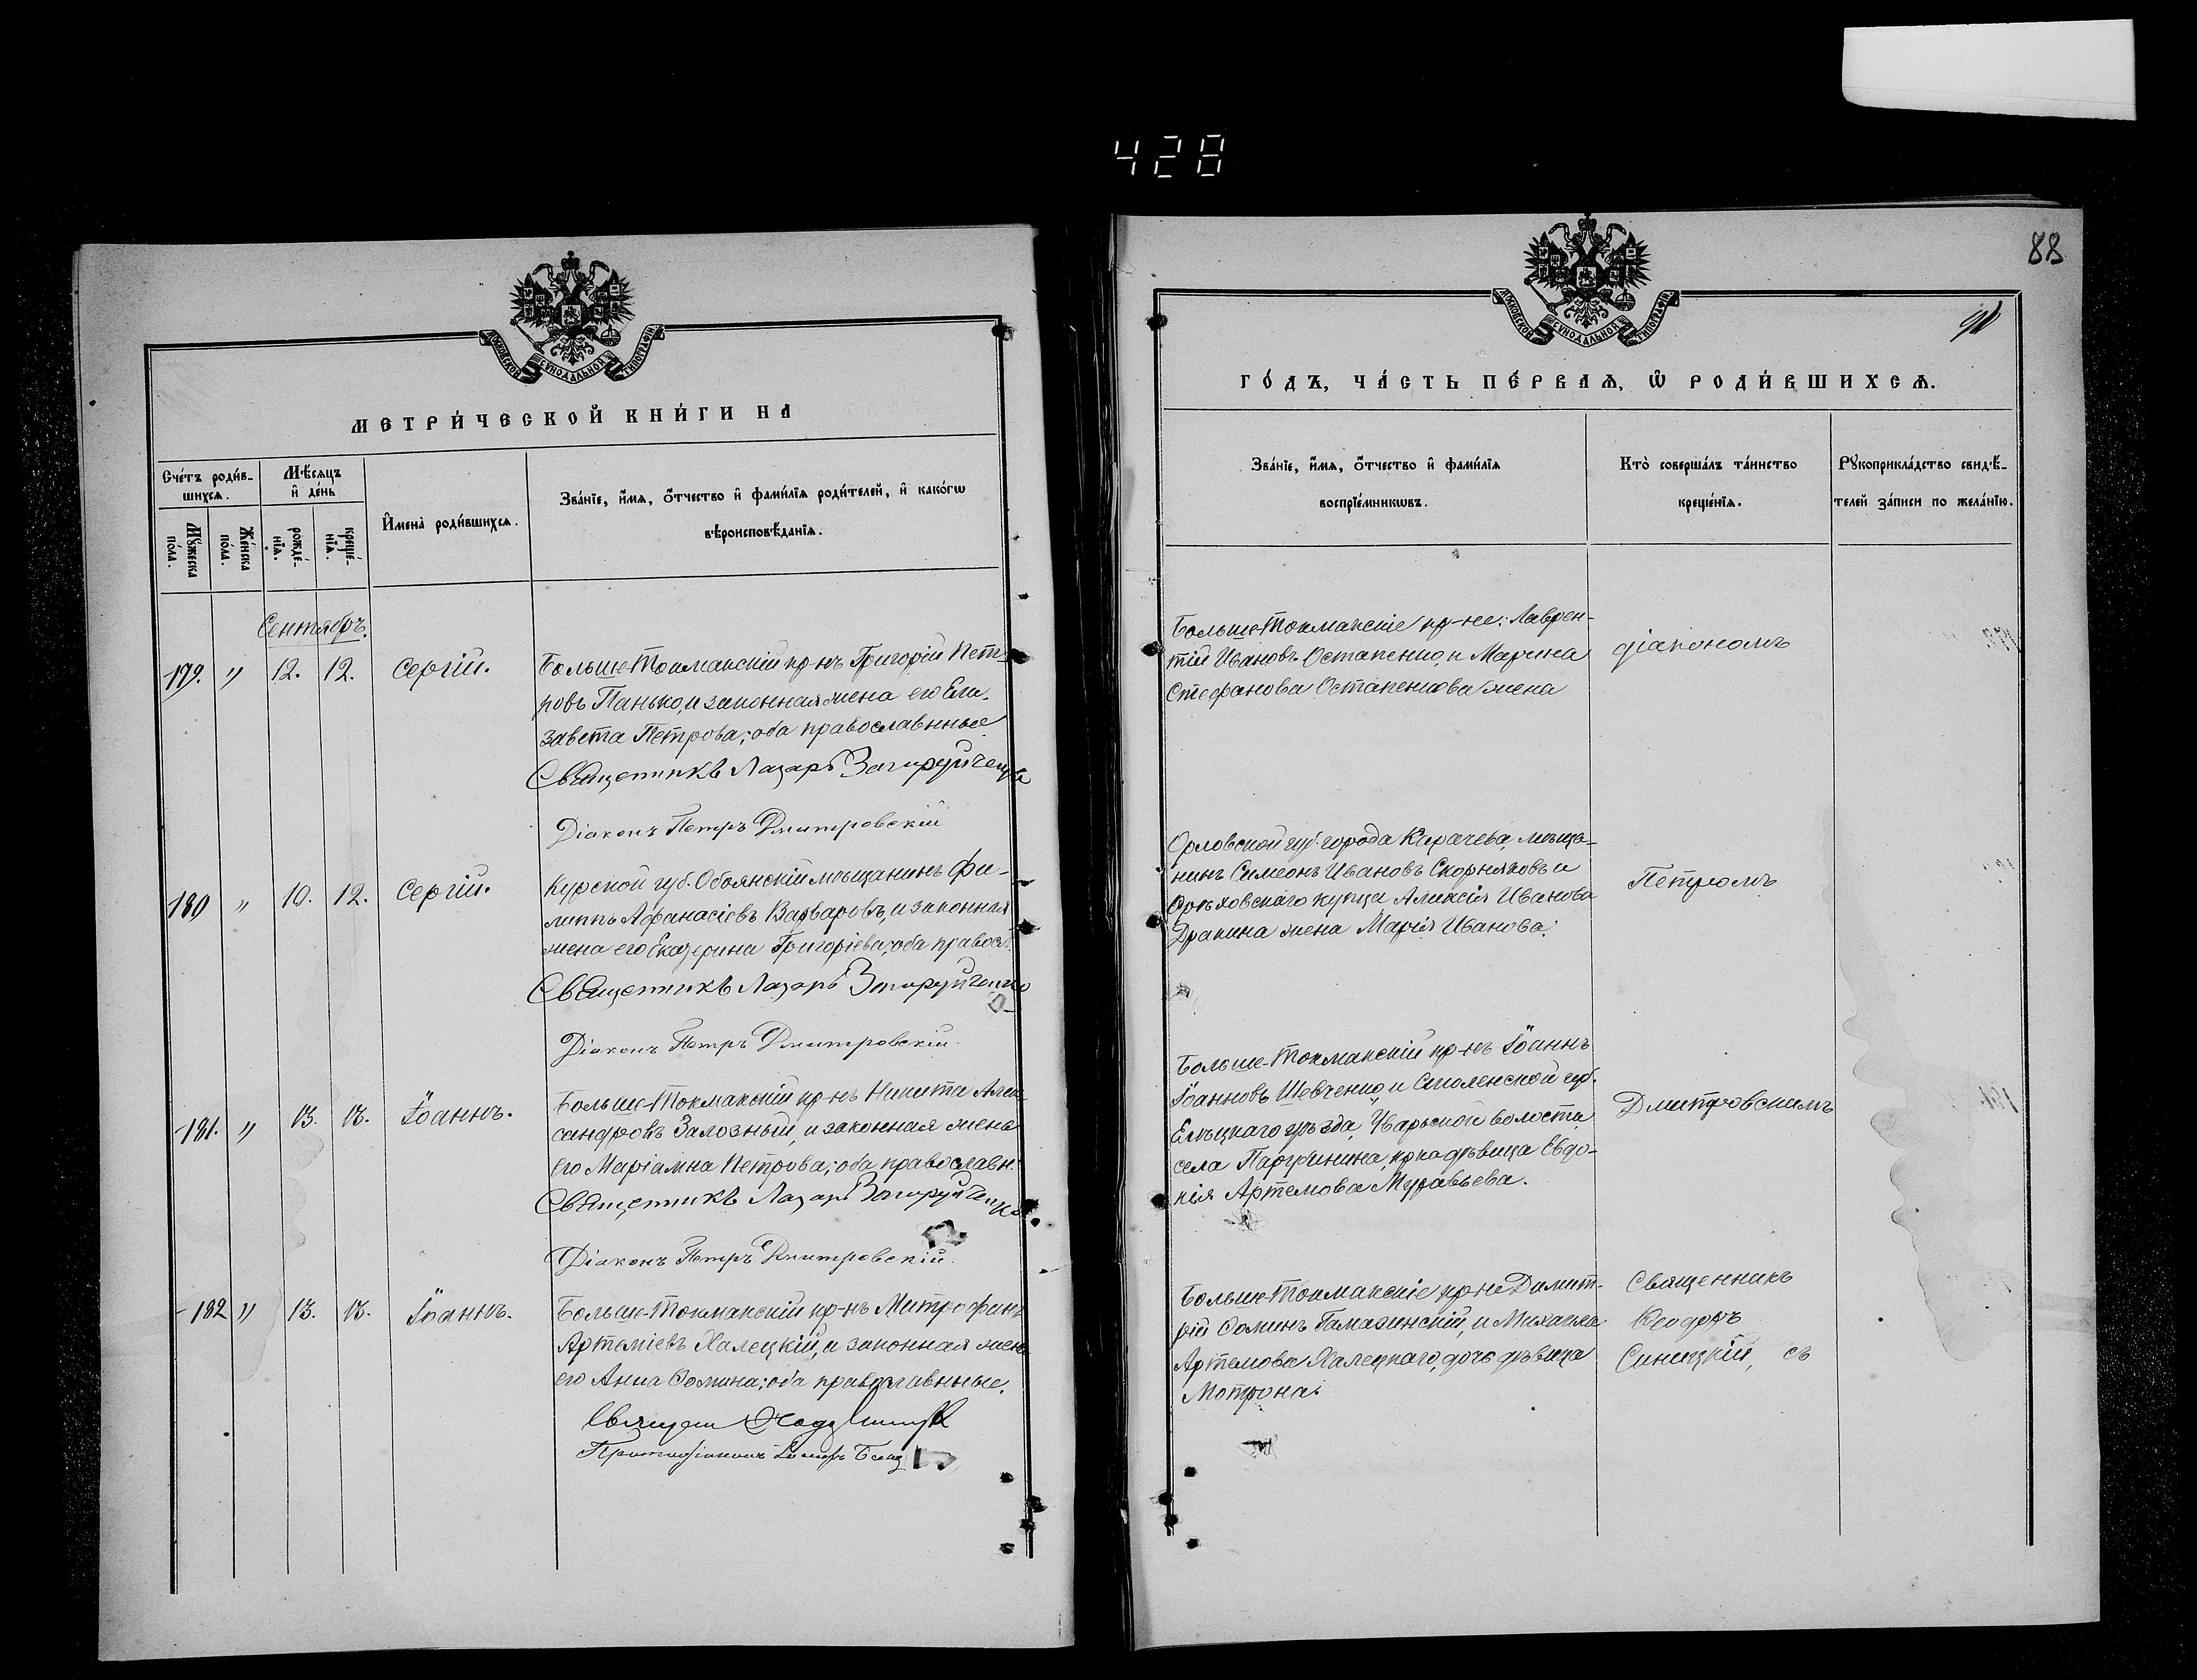 428
МОСКОВСКОЙ СУНОДАЛЬНОЙ ТИПОГРАФІИ
МЕТРИ́ЧЕСКОЙ КНИ́ГИ НА
Сче́тъ роди́в-
шихсѧ.
Му́жеска
по́ла.
Же́нска
по́ла.
Мѣ́сѧцъ
и҆ де́нь
рожде́-
нїѧ.
креще́-
нїѧ.
И҆мена̀ роди́вшихсѧ.
Зва́нїе, и҆́мѧ, ѻ҆́тчество и҆ фами́лїѧ роди́телей, и҆ како́гѡ
вѣроисповѣ́данїѧ.
Сентябрь.
179. " 12. 12. Сергій.
Больше-Токмакскій кр-нъ Григорій Пет-
ровъ Панько, и законная жена его Ели-
завета Петрова; оба православные.
Священникъ Лазарь
Діаконъ Петръ Дмитровскій
180 " 10. 12. Сергій.
Курской губ. Обоянскій мѣщанинъ Фи-
липпъ Афанасіевъ Варваровъ, и законная
жена его Екатерина Григоріева; оба правосл.
Священникъ Лазарь
Діаконъ Петръ Дмитровскій.
181. " 13. 13. Іоаннъ.
Больше-Токмакскій кр-нъ Никита Алек-
сандровъ Залозный, и законная жена
его Маріамна Петрова; оба православн.
Священникъ Лазарь
Діаконъ Петръ Дмитровскій.
182 " 13. 13. Іоаннъ.
Больше-Токмакскій кр-нъ Митрофанъ
Артеміевъ Халецкій, и законная жена
его Анна Ѳомина; оба православные.
Протодіаконъ
88
МОСКОВСКОЙ СУНОДАЛЬНОЙ ТИПОГРАФІИ
ГО́ДЪ, ЧА́СТЬ ПЕ́РВАѦ, Ѡ҆ РОДИ́ВШИХСѦ.
Зва́нїе, и҆́мѧ, ѻ҆́тчество и҆ фами́лїѧ
воспрїе́мникѡвъ.
Кто̀ соверша́лъ та́инство
креще́нїѧ.
Рꙋкоприкла́дство свидѣ́-
телей за́писи по жела́нїю.
Больше-Токмакскіе кр-не: Лаврен-
тій Ивановъ Остапенко, и Марина
Стефанова Остапенкова жена
діакономъ
Орловской губ. города Карачева, мѣща-
нинъ Симеонъ Ивановъ Скорняковъ и
Орѣховскаго купца Алексія Иванова
Дракина жена Марія Иванова.
Петромъ
Больше-Токмакскій кр-нъ Іоаннъ
Іоанновъ Шевченко, и Смоленской губ.
уѣзда, волости
села кр-ка дѣвица Евдо-
кія Артемова Муравьева.
Дмитровскимъ
Больше-Токмакскіе кр-не Димит-
рій Ѳоминъ Гамазинскій, и Михаила
Артемова Халецкаго, дочь дѣвица
Мотрона.
Священникъ
Ѳеодоръ
Синицкій, съ